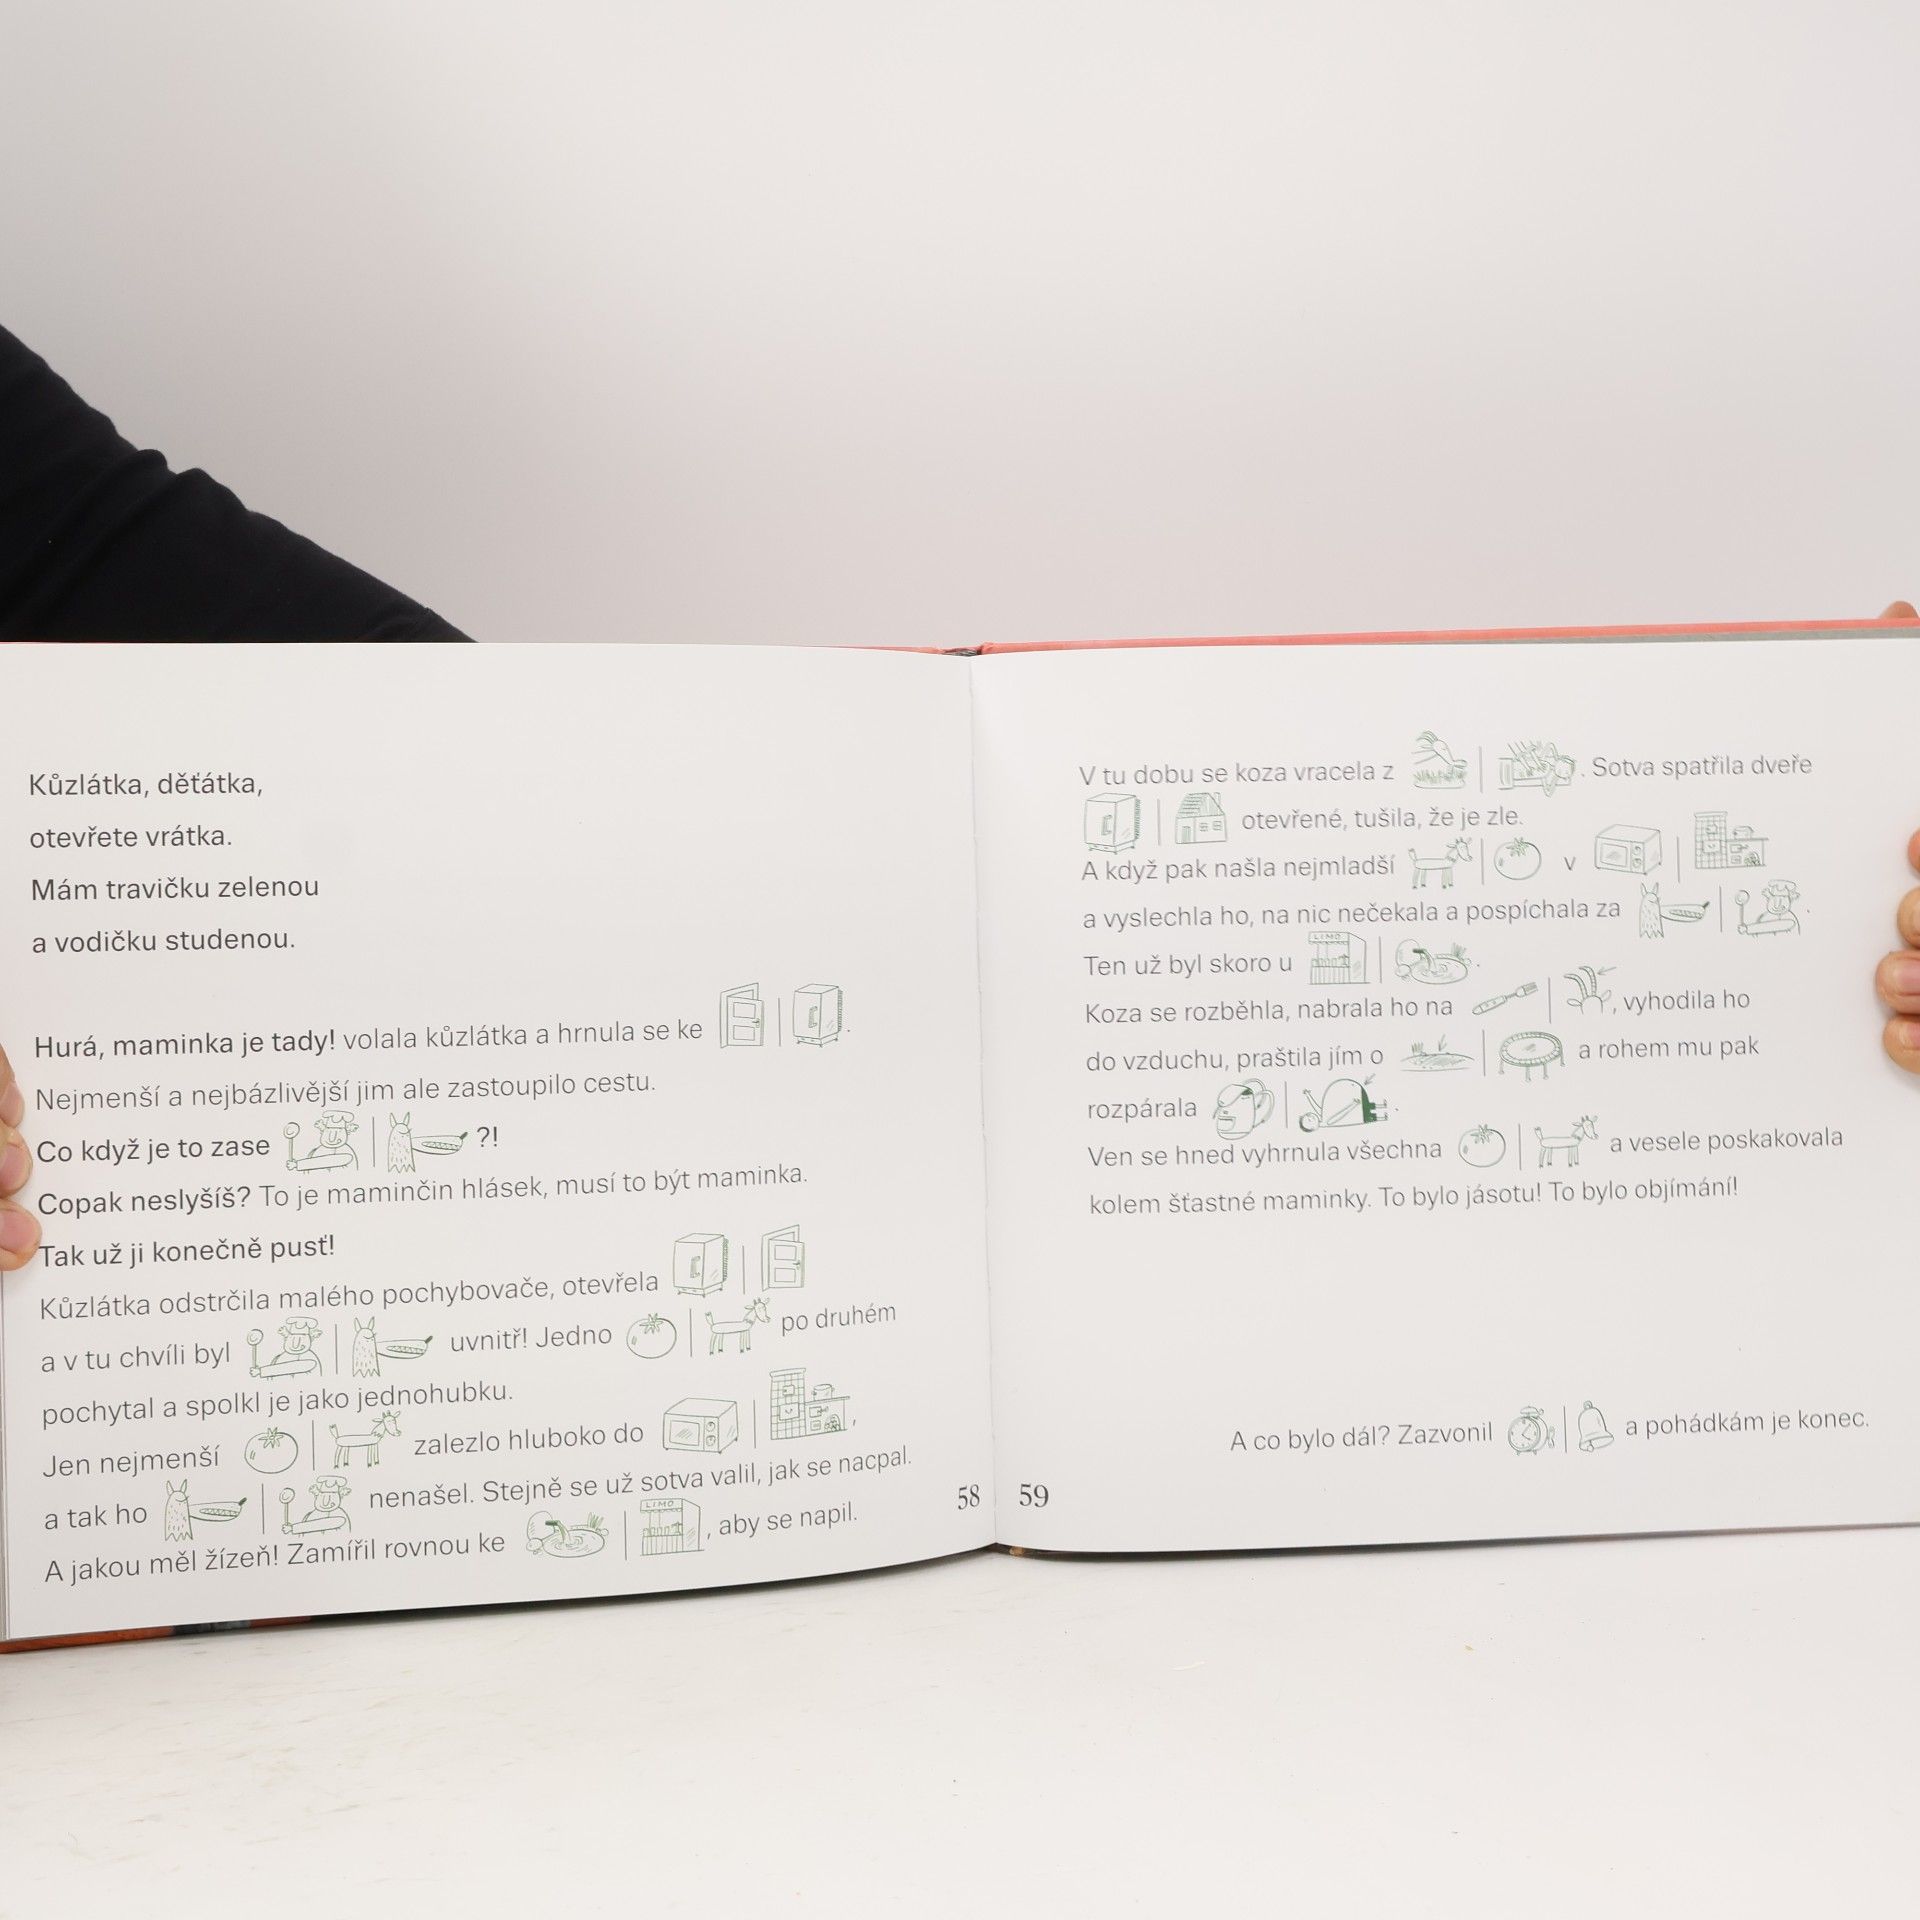 Kůzlátka, děťátka,
otevřete vrátka.
Mám travičku zelenou
a vodičku studenou.
Hurá, maminka je tady! volala kůzlátka a hrnula se ke .
Nejmenší a nejbázlivější jim ale zastoupilo cestu.
Co když je to zase ?!
Copak neslyšíš? To je maminčin hlásek, musí to být maminka.
Tak už ji konečně pusť!
Kůzlátka odstrčila malého pochybovače, otevřela
a v tu chvíli byl uvnitř! Jedno po druhém
pochytal a spolkl je jako jednohubku.
Jen nejmenší zalezlo hluboko do ,
a tak ho nenašel. Stejně se už sotva valil, jak se nacpal.
A jakou měl žízeň! Zamířil rovnou ke LIMO , aby se napil.
58
V tu dobu se koza vracela z . Sotva spatřila dveře
otevřené, tušila, že je zle.
A když pak našla nejmladší v
a vyslechla ho, na nic nečekala a pospíchala za .
Ten už byl skoro u LIMO .
Koza se rozběhla, nabrala ho na , vyhodila ho
do vzduchu, praštila jím o a rohem mu pak
rozpárala .
Ven se hned vyhrnula všechna a vesele poskakovala
kolem šťastné maminky. To bylo jásotu! To bylo objímání!
A co bylo dál? Zazvonil a pohádkám je konec.
59